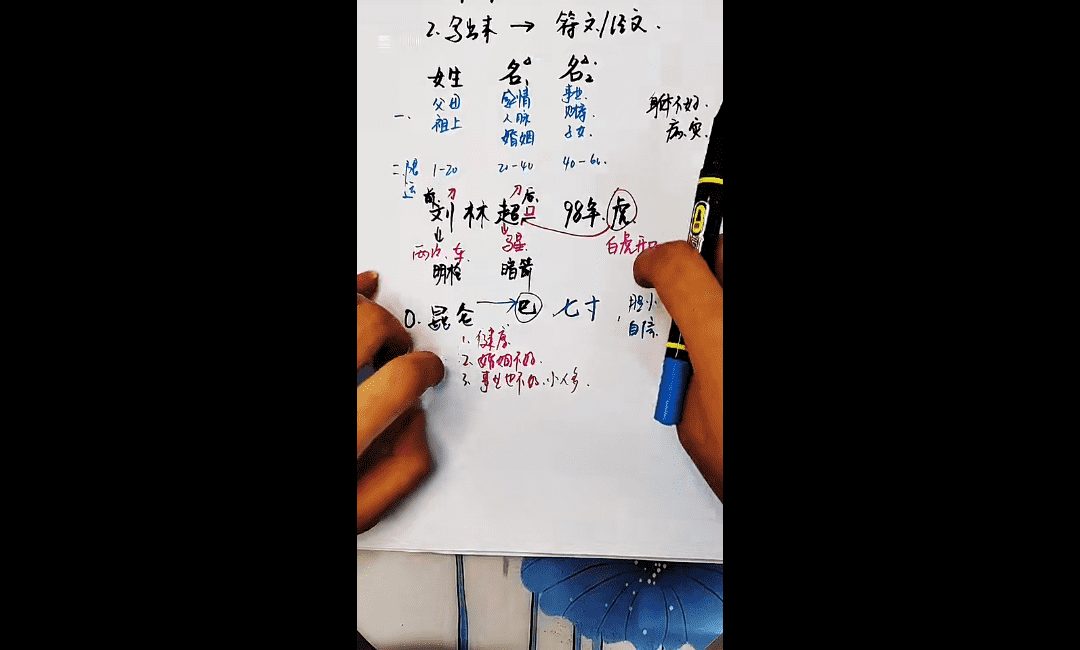 2. 写出来 → 符文/经文.
女生 名1 名2
父母 感情 事业
祖上 人脉 财帛
一、 婚姻 子女
身体不好.
病.灾.
二.限运 1-20 20-40 40-60.
前.刀 刀后.口
刘 林 超 98年.虎.
马星 白虎开口
明枪 暗箭
0. 昆仑 → 巳 七寸
胆小
自信
1. 健康
2. 婚姻不好.
3. 事业也不好.小人多.